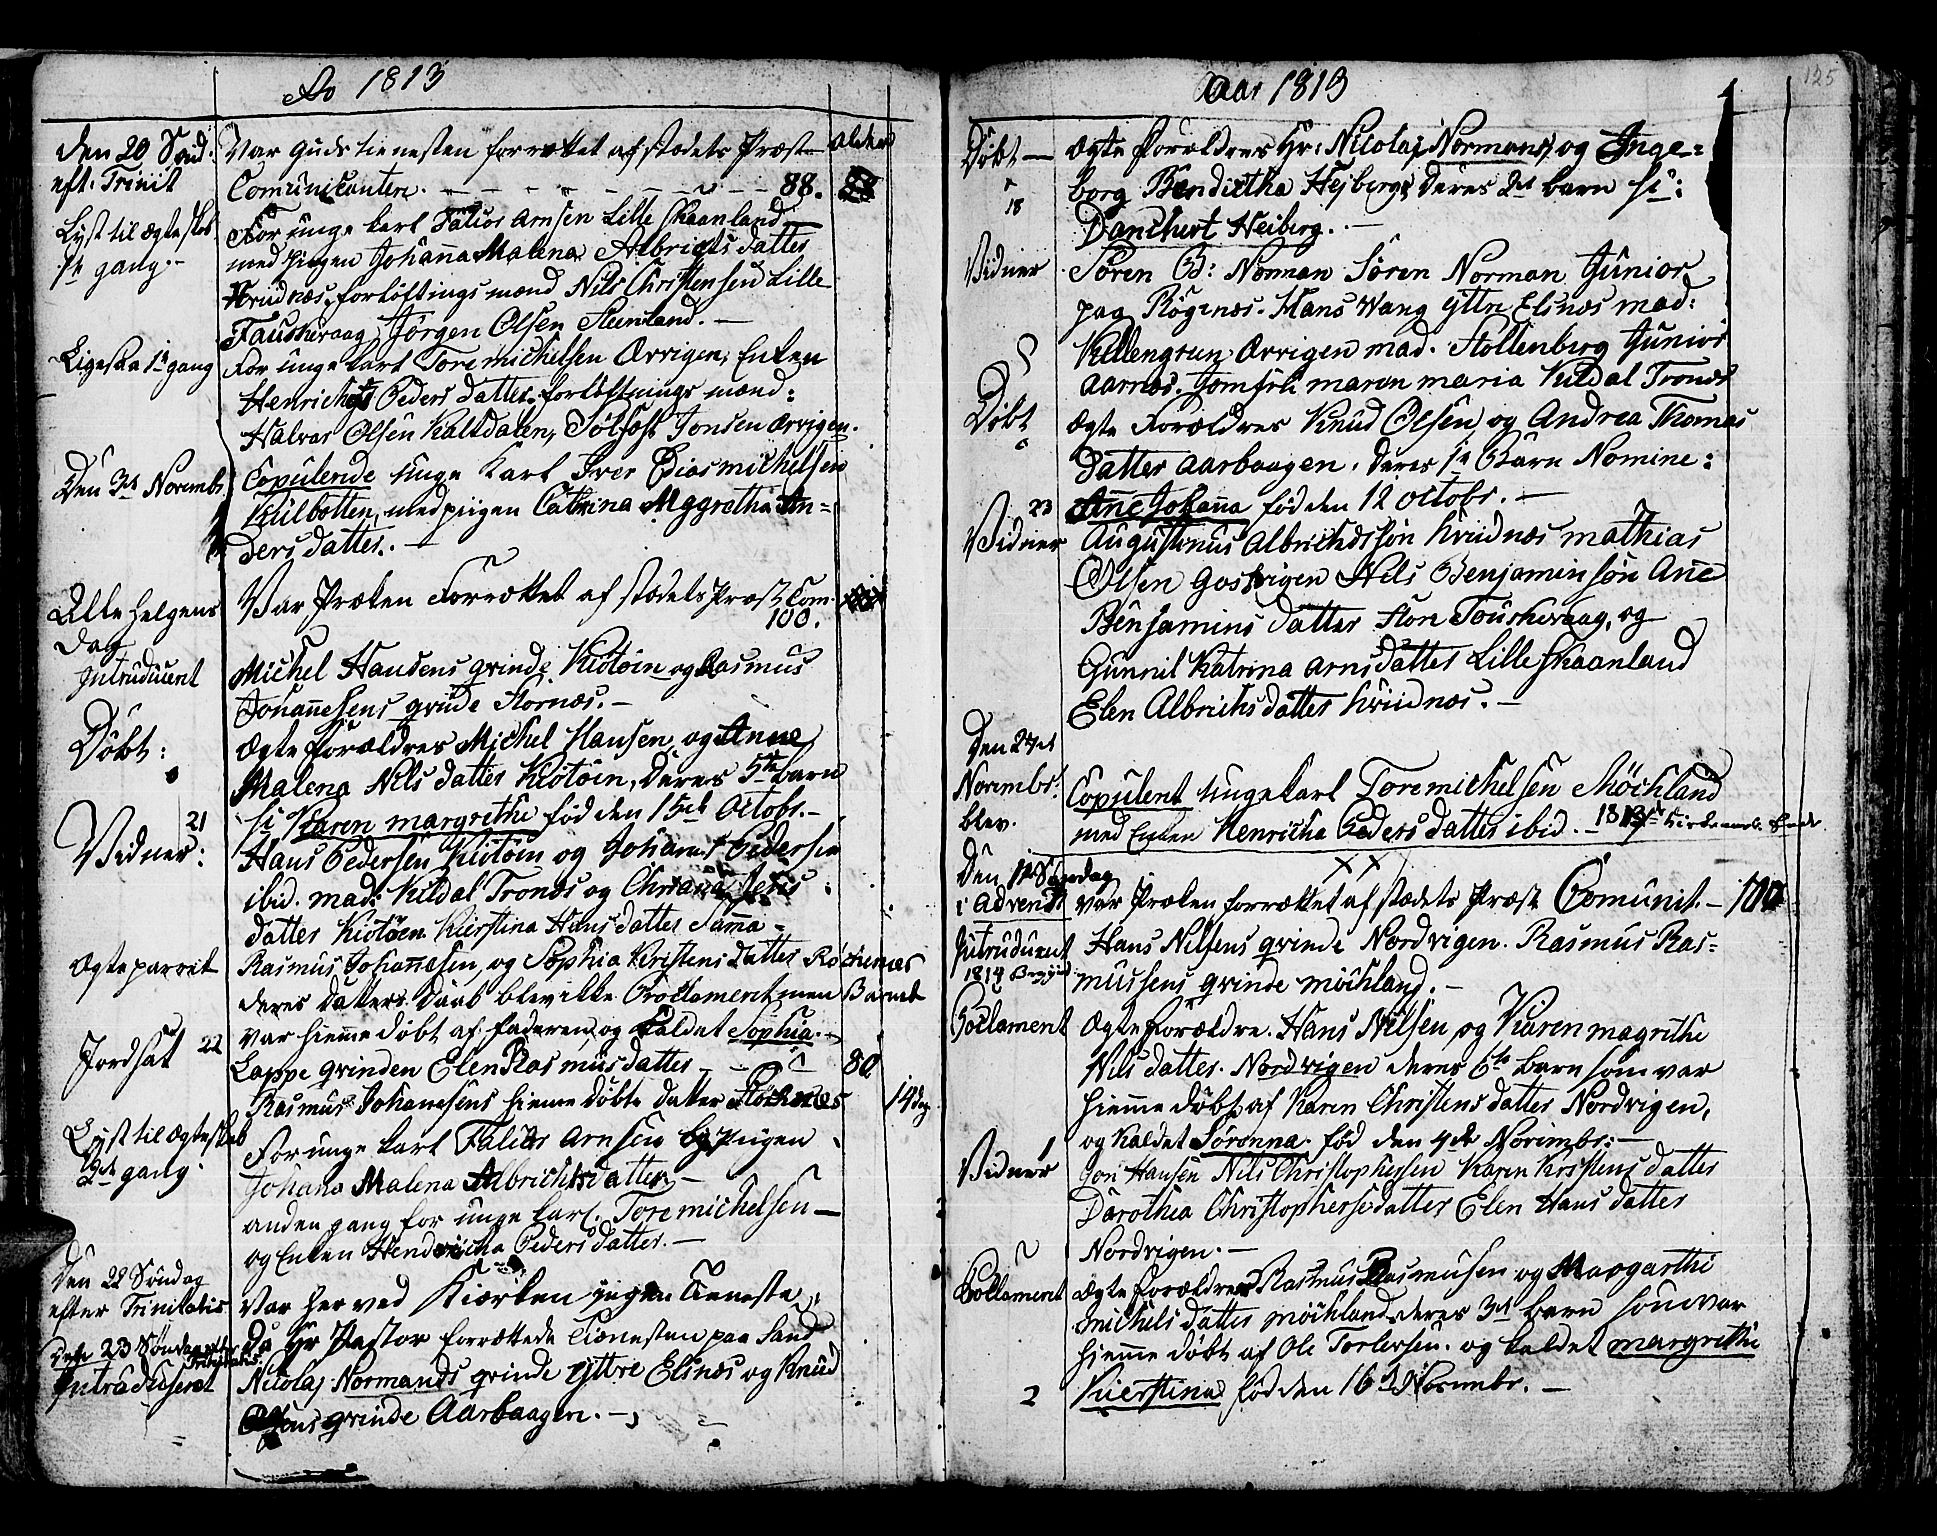 Ao 1813
den 20 Sönd:
eft: Trinit
Var Guds tienesten forrettet af stædets Præst alder
Comunicanter. — 88.
Lyst til ægteskab
1te gang.
For unge karl Falios Arnsen Lille Skaanland
med pigen Johanna Malena Albrigts datter
forlöftings mænd Nils Christensen Lille
Fauskevaag, Jörgen Olsen Steenland. —
Ligesaa 1te gang
For unge karl Tore Michelsen Ervigen, Enken
Henricha Peders datter forlöftnings mænd:
Halvor Olsen Kaltdalen, Jonsen Ervigen.
Den 3de Novembr.
Copulerede unge Karl Iver Michelsen
Kilbotten, med pigen Catrina Maggretha An=
ders datter. —
Alle Helgens
Dag
Var Præken Forrettet af stædets Præst Com.
100.
Intruducert
Michel Hansens qvinde Kiötöen og Rasmus
Johannesens qvinde Stornes. —
Döbt:
Ægte forældre Michel Hansen og Anne
Malena Nils datter Kiötöen, deres 5te barn
21
Karen Margrethe föd den 15de Octobr. —
Vidner:
Hans Pedersen Kiötöen og Johannes Pedersen
ibid. mad: Kildal Tronds og
datter Kiötöen Kierstina Hans datter Samma=
Ægte parret
Rasmus Johannesen, og Sophia Kristens datter Röckenes
deres datters Daab blev ikke Proclameret men Barnet
var hieme döbt af faderen og kaldet Sophia. —
Jordsat 22
Lappe qvinden Elen Rasmus datter — 80
Rasmus Johannesens hieme döbte datter Röckenes 14 dag
Lyst til ægteskab
2de gang.
For unge karl Falios Arnsen og Pigen
Johana Malena Albrichts datter —
anden gang for unge karl. Tore Michelsen —
og Enken Hendricha Peders datter. —
Den 22 Söndag
efter Trinitatis
Var her ved Kierken ingen Tieneste,
Den 23 Söndag efter
Trinitatis
Da Hr Pastor forrettede Tienesten paa Sand
Intraduseret
Nicolaj Normands qvinde Yttre Elsnes og Knud
Olsens qvinde Aarbaagen. —

Aar 1813
125
Döbt —
Ægte Forældre Hr: Nicolaj Normans og Inge=
18
borg Bendictha Hejberg deres 2det barn
Danchert Heiberg. —
Vidner
Sören B: Norman Sören Norman Junior
paa Rögenes. Hans Wang Yttre Elsnes mad:
Kellengren Ervigen mad. Stoltenberg Junior
Aarnes. Jomfru Maren Maria Kildal Trones
Döbt
Ægte Forældre Knud Olsen og Andrea Thomas
datter Aarbaagen. deres 1te Barn Nomine:
23
Ane Johanna föd den 12 Octobr. —
Vidner
Augustinus Albrichtssön Mathias
Olsen Gosvigen Nils Benjaminsön Ane
Benjamins datter Store Fouskevaag, og
Gunnil Katrina Arns datter Lille Skaanland
Elen Albrichs datter —
Den 24de
Novembr:
blev.
Copulert Unge karl Tore Michelsen Möchland
med Enken Henricha Peders datter ibid. — 1813
Den 1te Söndag
i Advent
var Præken forrettet af stædets Præst Comunit. — 100
Intruducert
1814
Hans Nilsens qvinde Nordvigen. Rasmus Ras=
mussens qvinde Möchland. —
Poclament
Ægte forældre. Hans Nilsen, og Karen Magrithe
Nils datter. Nordvigen deres 6te barn som var
hieme döbt af Karen Christens datter Nordvigen,
1
og kaldet Söronna. föd den 4de Novembr. —
Vidner
Jon Hansen Nils Christophersen Karen Kristens datter
Darothea Christophersdatter Elen Hans datter
Nordvigen. —
Poclament
Ægte forældre Rasmus Rasmusen og Margarthe
Michels datter Möchland deres 3de barn som var
hieme döbt af Ole Torlersen. og kaldet Margrethe
2
Kierstina föd den 16de Novembr. —